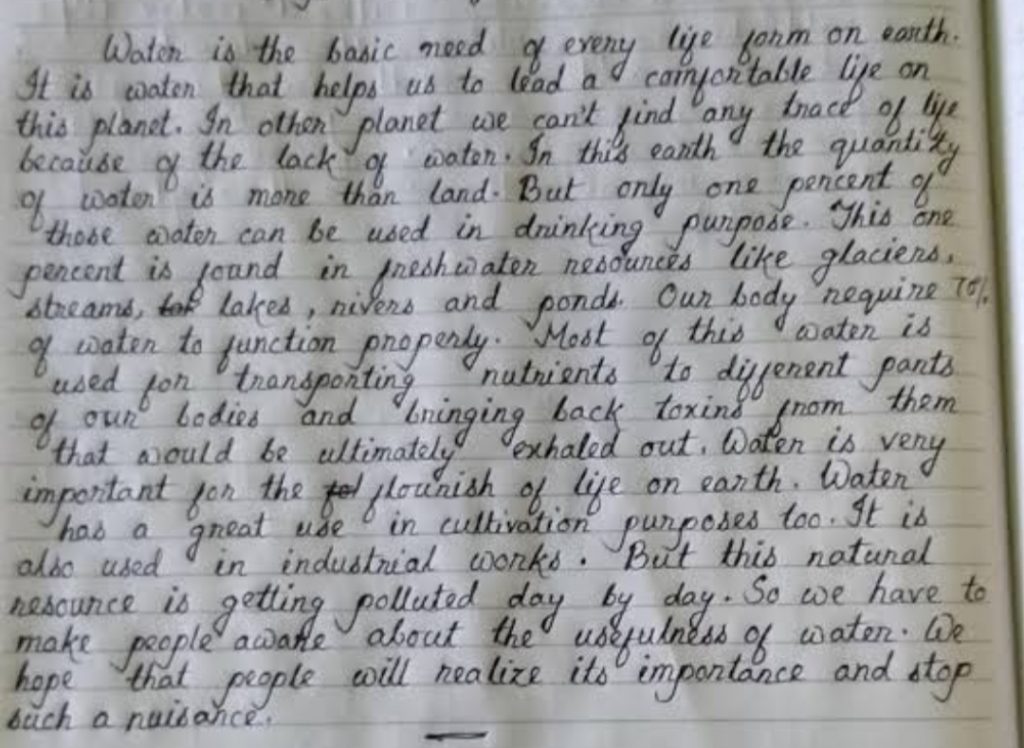 Water is the basic need of every life form on earth.
It is water that helps us to lead a comfortable life on
this planet. In other planet we can't find any trace of life
because of the lack of water. In this earth the quantity
of water is more than land. But only one percent of
those water can be used in drinking purpose. This one
percent is found in freshwater resources like glaciers,
streams, lakes, rivers and ponds. Our body require 70%
of water to function properly. Most of this water is
used for transporting nutrients to different parts
of our bodies and bringing back toxins from them
that would be ultimately exhaled out. Water is very
important for the flourish of life on earth. Water
has a great use in cultivation purposes too. It is
also used in industrial works. But this natural
resource is getting polluted day by day. So we have to
make people aware about the usefulness of water. We
hope that people will realize its importance and stop
such a nuisance.